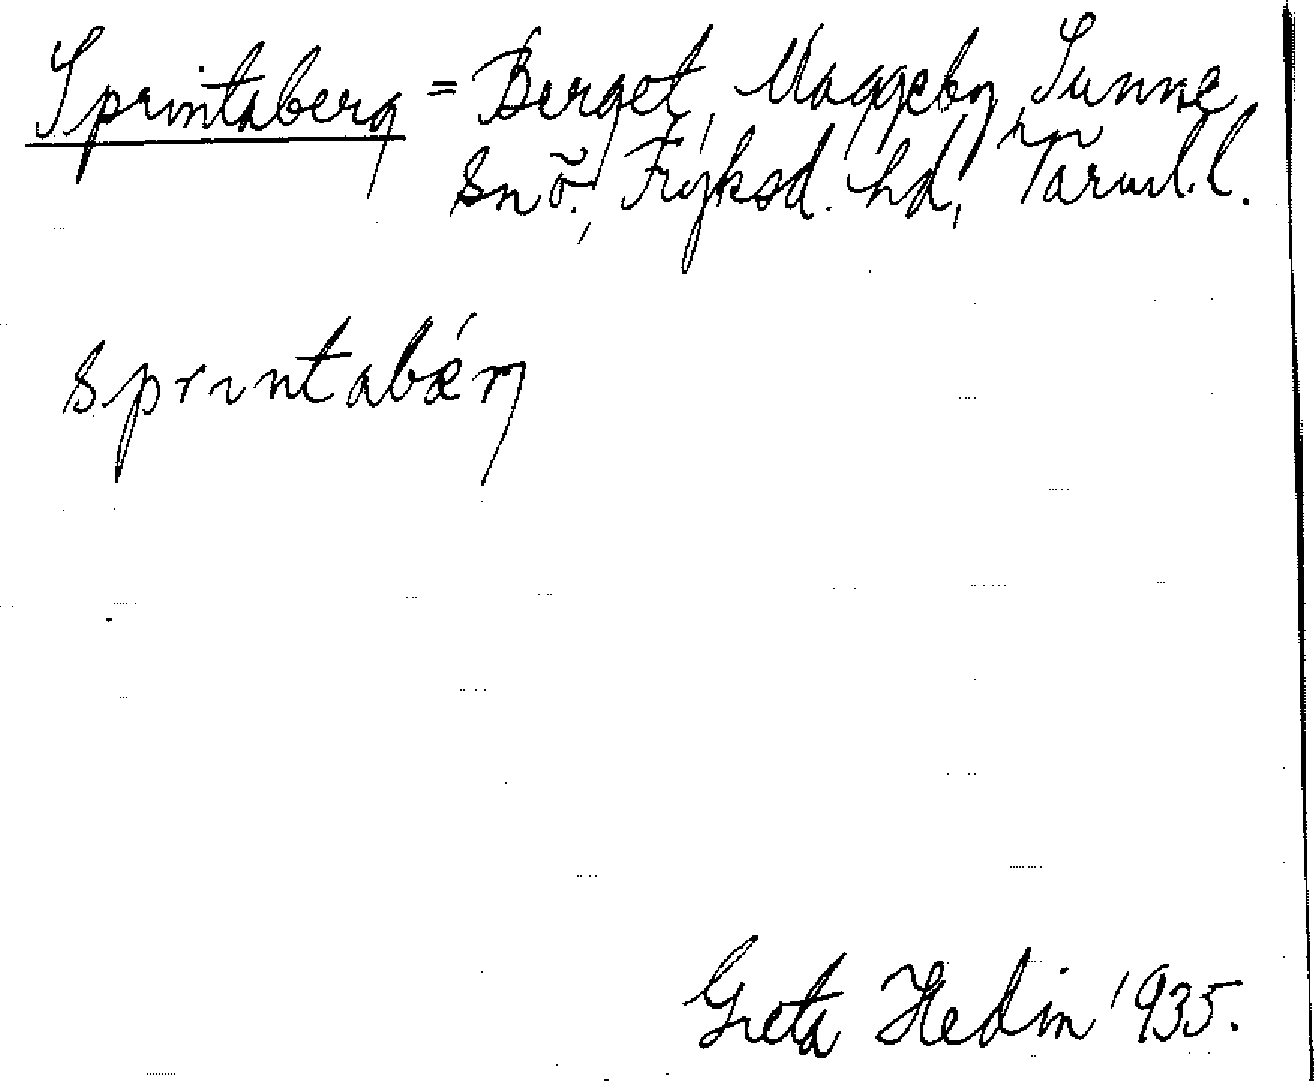 Sprintaberg = Berget, Maggeby, Sunne
sn ö., Fryksd. hd, Värml. l.
sprıntabǽrj
Greta Hedin 1935.